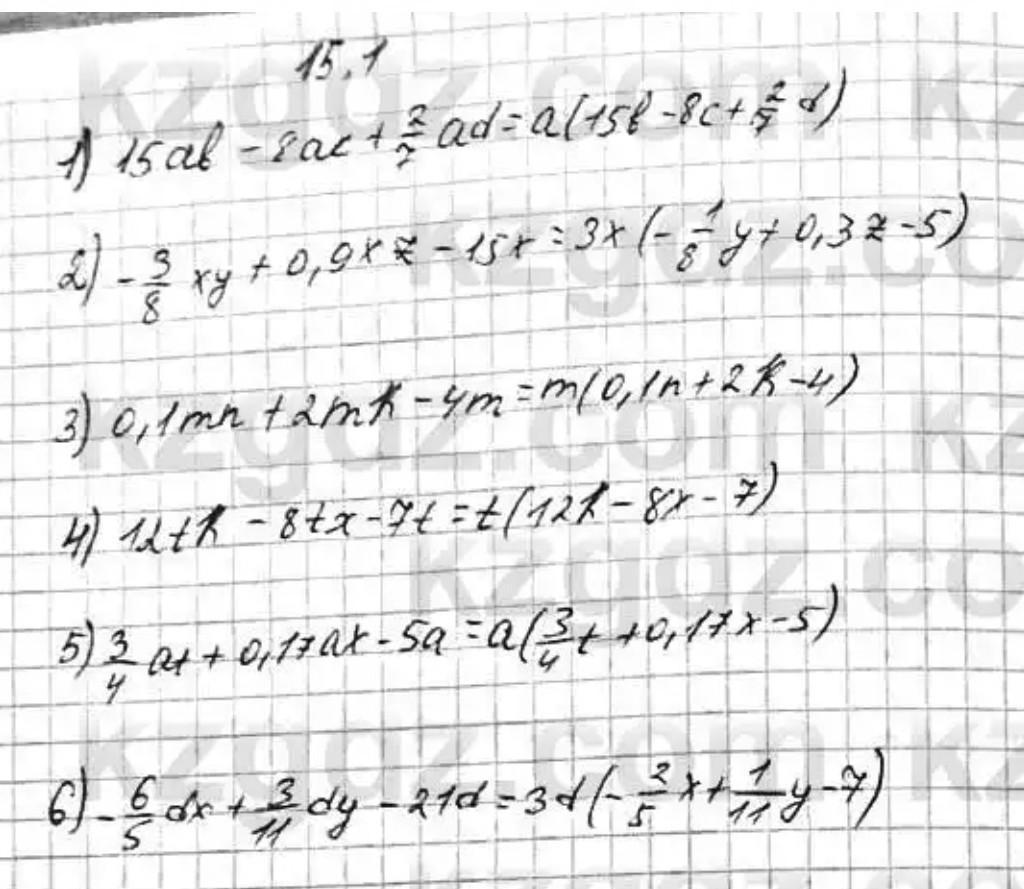 15.1
1) 15ab - 8ac + 2/7 ad = a(15b - 8c + 2/7 d)
2) - 3/8 xy + 0,9xz - 15x = 3x(- 1/8 y + 0,3z - 5)
3) 0,1mn + 2mk - 4m = m(0,1n + 2k - 4)
4) 12tk - 8tx - 7t = t(12k - 8x - 7)
5) 3/4 at + 0,17ax - 5a = a(3/4 t + 0,17x - 5)
6) - 6/5 dx + 3/11 dy - 21d = 3d(- 2/5 x + 1/11 y - 7)